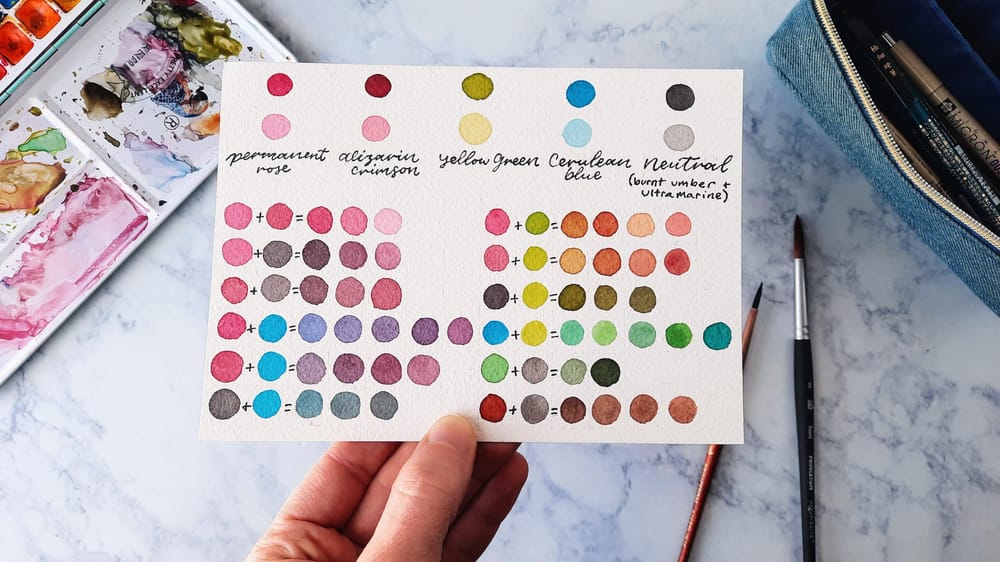 permanent
rose
alizarin
crimson
yellow green
Cerulean
blue
Neutral
(burnt umber +
ultramarine)
+ =
+ =
+ =
+ =
+ =
+ =
+ =
+ =
+ =
+ =
+ =
+ =
MICRON
®